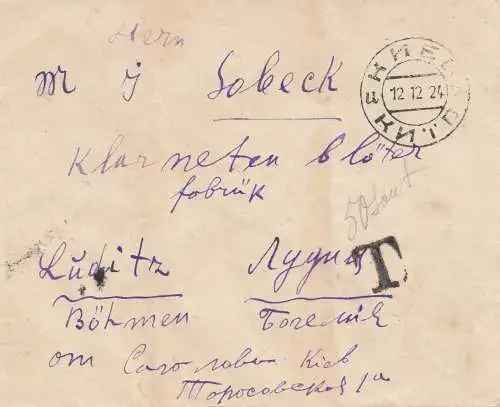 Herrn
Mr J Sobeck
КИЕВ
12 12 24
КИЇВ
Klarneten blöter
fabrük
50 cent
Luditz Лудиц
T
Böhmen Богемие
от Сагловац Kieв
Торосовская